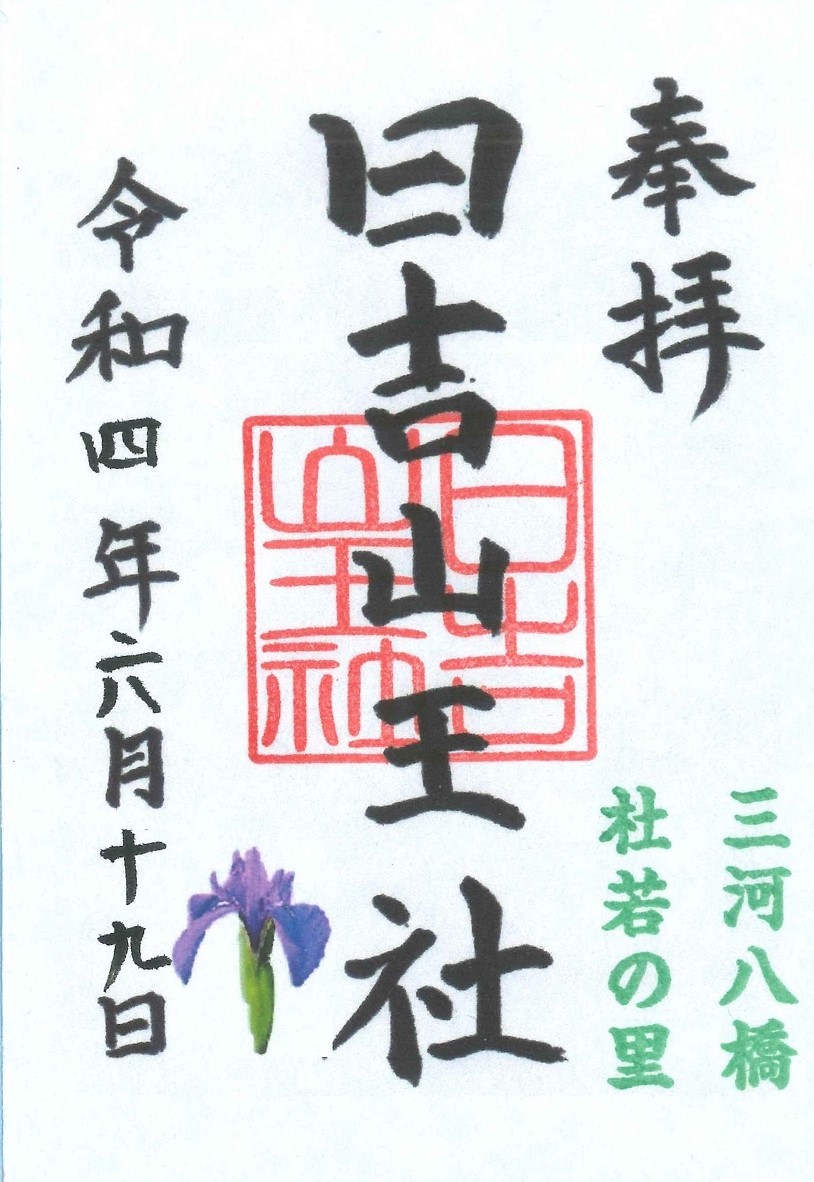 奉拝
三河八橋
杜若の里
日吉山王社
日吉
山王社
令和四年六月十九日